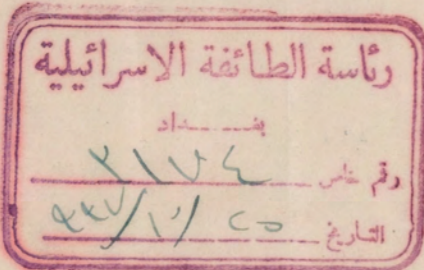 رئاسة الطائفة الاسرائيلية
بغــــداد
رقم خاص ٣١٧٤
التاريخ ٢٥/١٠/٩٣٧